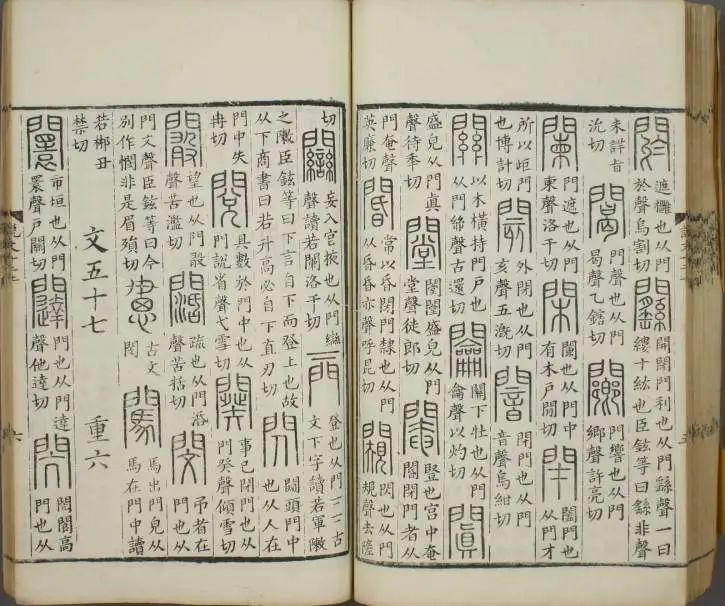 閼遮攤也从門於聲烏割切𨷱開閉門利也从門繇聲一曰縷十紘也臣鉉等曰繇非聲
未詳旨沇切𨶯門聲也从門曷聲乙鎋切闀門響也从門鄉聲許亮切
闌門遮也从門柬聲洛干切閑闌也从門中有木戶閒切閉闔門也从門才
所以歫門也博計切閡外閉也从門亥聲五溉切闇閉門也从門音聲烏紺切
關以木橫持門戶也从門𢇇聲古還切𨷲關下牡也从門龠聲以灼切闐
盛皃从門真聲待秊切闛闛闛盛皃也从門堂聲徒郎切閹豎也宮中奄閽閉門者从
門奄聲英廉切閽常以昏閉門隸也从門从昏昏亦聲呼昆切闚閃也从門規聲去隓
切𨷻妄入宮掖也从門䜌聲讀若闌洛干切𨳌登也从門二二古文下字讀若軍敶
之敶臣鉉等曰下言自下而登上也故从下商書曰若升高必自下直刃切閃闚頭門中也从人在
門中失冉切閱具數於門中也从門說省聲弋雪切闋事已閉門也从門癸聲傾雪切
闞望也从門𢽤聲苦濫切闊疏也从門㓉聲苦括切閔弔者在門也从
門文聲臣鉉等曰今別作憫非是眉殞切古文閔闖馬出門皃从馬在門中讀
若郴丑禁切
文五十七 重六
闤市垣也从門瞏聲戶關切闥門也从門達聲他達切閌閌閬高門也从